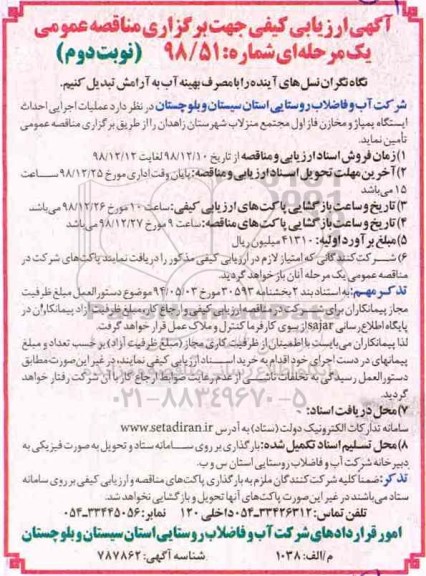 آگهی ارزیابی کیفی جهت برگزاری مناقصه عمومی
یک مرحله‌ای شماره: ۹۸/۵۱ (نوبت دوم)
نگاه نگران نسل‌های آینده را با مصرف بهینه آب به آرامش تبدیل کنیم.
شرکت آب و فاضلاب روستایی استان سیستان و بلوچستان در نظر دارد عملیات اجرایی احداث
ایستگاه پمپاژ و مخازن فاز اول مجتمع منزلاب شهرستان زاهدان را از طریق برگزاری مناقصه عمومی
تأمین نماید.
۱) زمان فروش اسناد ارزیابی و مناقصه از تاریخ ۹۸/۱۲/۱۰ لغایت ۹۸/۱۲/۱۲
۲) آخرین مهلت تحویل اسناد ارزیابی و مناقصه: پایان وقت اداری مورخ ۹۸/۱۲/۲۵ ساعت
۱۵ می‌باشد
۳) تاریخ و ساعت بازگشایی پاکت‌های ارزیابی کیفی: ساعت ۱۰ مورخ ۹۸/۱۲/۲۶ می‌باشد
۴) تاریخ و ساعت بازگشایی پاکت‌های مناقصه: ساعت ۹ مورخ ۹۸/۱۲/۲۷ می‌باشد
۵) مبلغ برآورد اولیه: ۴۱۳۱۰ میلیون ریال
۶) شرکت‌کنندگانی که امتیاز لازم در ارزیابی کیفی مذکور را دریافت نمایند پاکت‌های شرکت در
مناقصه عمومی یک مرحله آنان باز خواهد گردید.
تذکر مهم: به استناد بند ۲ بخشنامه ۳۰۵۹۳ مورخ ۹۴/۰۵/۰۳ موضوع دستورالعمل مبلغ ظرفیت
مجاز پیمانکاران برای شرکت در مناقصه ارزیابی کیفی و ارجاع کار، مبلغ ظرفیت آزاد پیمانکاران در
پایگاه اطلاع رسانی sajar از سوی کارفرما کنترل و ملاک عمل قرار خواهد گرفت.
لذا پیمانکاران می‌بایست با اطمینان از ظرفیت کاری مجاز (مبلغ ظرفیت آزاد) بر حسب تعداد و مبلغ
پیمانهای در دست اجرای خود اقدام به خرید اسناد ارزیابی کیفی نمایند، در غیر این صورت مطابق
دستورالعمل رسیدگی به تخلفات ناشی از عدم رعایت ضوابط ارجاع کار با آن شرکت رفتار خواهد
گردید.
۷) محل دریافت اسناد:
سامانه تدارکات الکترونیک دولت (ستاد) به آدرس www.setadiran.ir
۸) محل تسلیم اسناد تکمیل شده: بارگذاری بر روی سامانه ستاد و تحویل به صورت فیزیکی به
دبیرخانه شرکت آب و فاضلاب روستایی استان س و ب.
تذکر: ضمناً کلیه شرکت‌کنندگان ملزم به بارگذاری پاکت‌های مناقصه و ارزیابی کیفی بر روی سامانه
ستاد می‌باشند در غیر این صورت پاکت‌های آنها تحویل و بازگشایی نخواهد شد.
تلفن تماس: ۳۳۴۲۶۳۱۲-۰۵۴ داخلی ۱۲۰ نمابر: ۳۳۴۴۵۰۵۶-۰۵۴
امور قراردادهای شرکت آب و فاضلاب روستایی استان سیستان و بلوچستان
م/الف: ۱۰۳۸ شناسه آگهی: ۷۸۷۸۶۲
۰۲۱-۸۸۳۴۹۶۷۰-۵